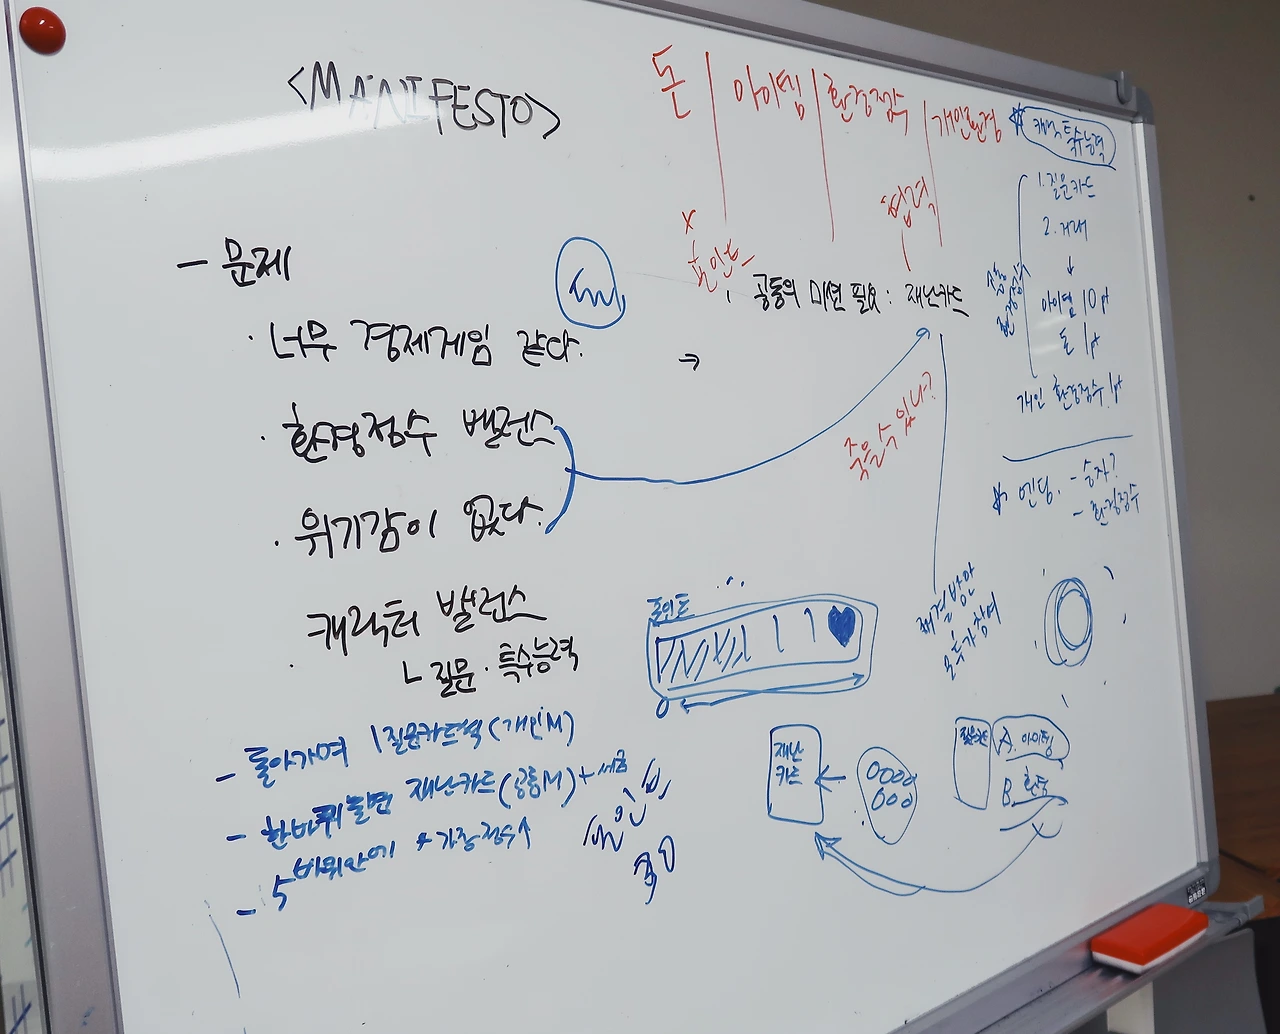 <MANIFESTO>
돈 | 아이템 | 환경점수 | 개인환경
- 문제
· 너무 경제게임 같다.
· 환경점수 밸런스
· 위기감이 없다.
· 캐릭터 밸런스
ㄴ 질문 · 특수능력
- 돌아가며 1질문카드씩 (개인M)
- 한바퀴돌면 재난카드(공통M) + 세금
- 5바퀴안에
x
포인트
협력
공통의 미션 필요 : 재난카드
→
죽을 수 있나?
해결방안
포인트
0
재난
카드
질문카드
A. 아이템
B. 환
캐릭 특수능력
1. 질문카드
2. 거래
↓
아이템 10pt
돈 1pt
개인 환경점수 1pt
엔딩. - 승자?
- 환경점수